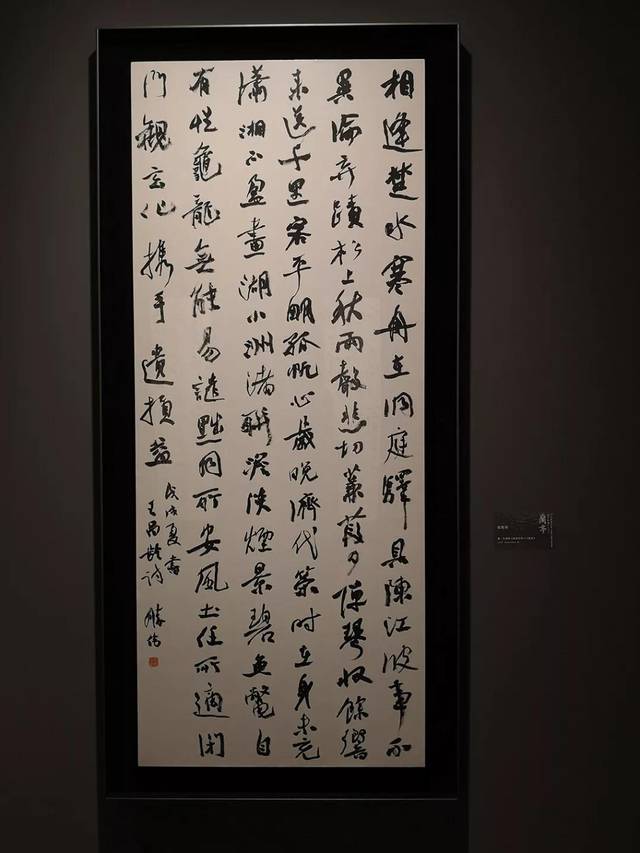 相逢楚水寒舟在洞庭驛具陳江波事不
異淪弃蹟杉上秋雨聲悲切蒹葭夕彈琴收餘響
来送千里客平明孤帆心歲晚濟代策時在身未充
瀟湘不盈畫湖小洲渚聯澹淡煙景碧魚鱉自
有性龜龍無能易譴黜同所安風土任所適閉
門觀玄化攜手遺損益
戊戌夏書
王昌齡詩
蘭亭